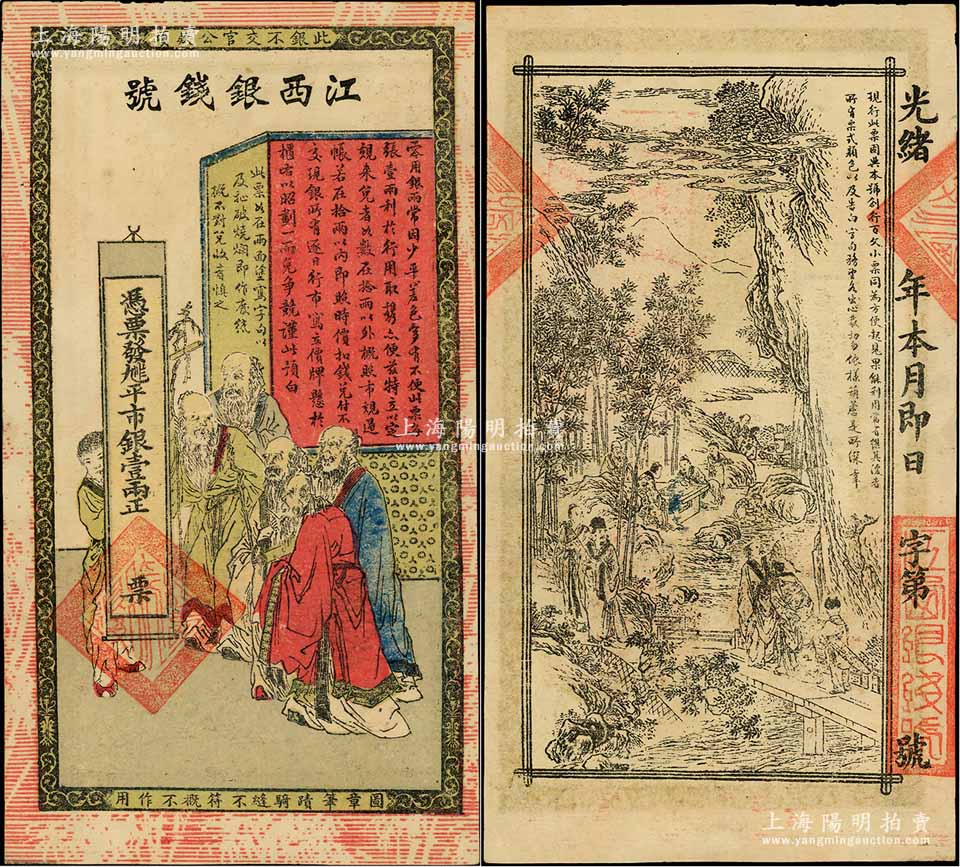 上海陽明拍賣
www.yangmingauction.com
此銀不交官公
江西銀錢號
零用銀兩常因少平差色多有不便此票
張壹兩利於行用取攜亦便茲特立以定
規來兌者如數在拾兩以外概照市規過
帳若在拾兩以內即照時價扣錢兌付不
交現銀所有逐日行市寫立價牌懸於
櫃右以昭劃一而免爭競謹此預白
此票如在兩面塗寫字句以
及扯破燒爛即作廢紙
概不對兌收者慎之
憑票發 平市銀壹兩正
票
圖章筆蹟騎縫不符概不作用
上海陽明拍賣
www.yangmingauction.com
光緒 年本月即日
字第 號
江西銀錢號
現行此票因與本號創行百文小票同為方便起見果能利用當者
所有票式顏色以及告白字句
上海陽明拍賣
www.yangmingauction.com
上海陽明拍賣
www.yangmingauction.com